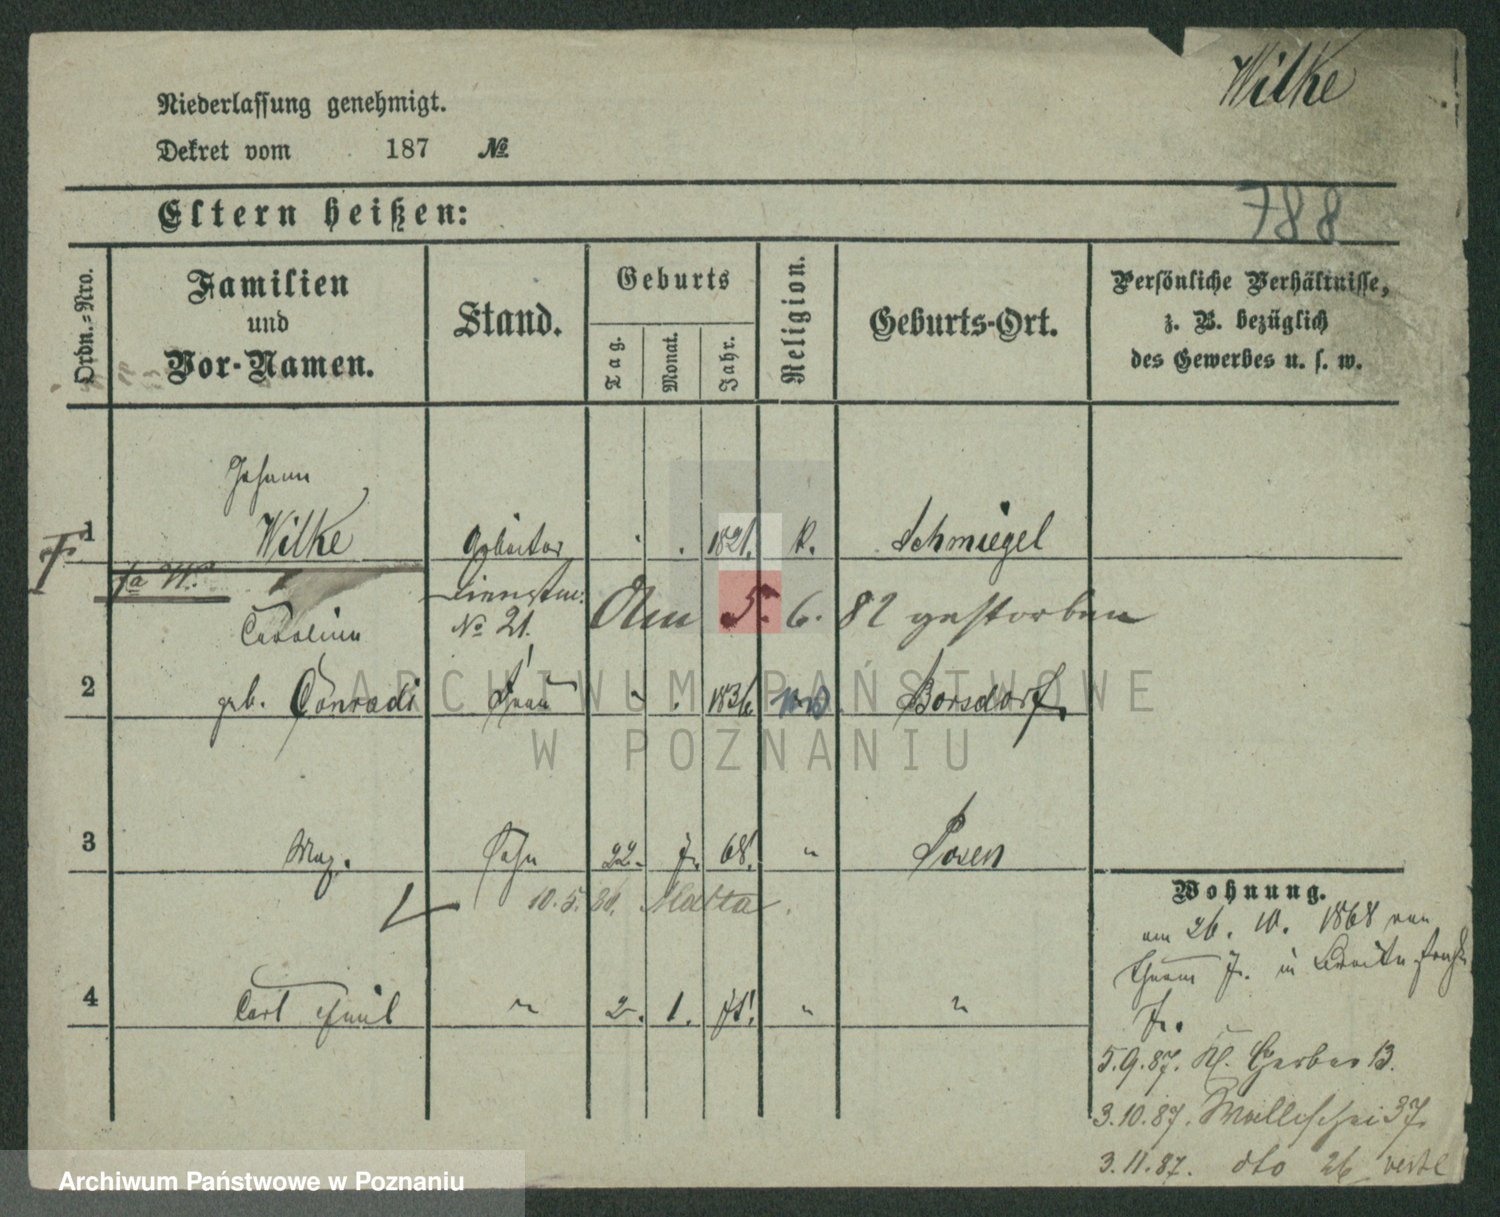 Wilke
Niederlassung genehmigt.
Dekret vom 187 №
Eltern heißen:
788
Ordn.-Nro.
Familien
und
Vor-Namen.
Stand.
Geburts
Tag.
Monat.
Jahr.
Religion.
Geburts-Ort.
Persönliche Verhältnisse,
z. B. bezüglich
des Gewerbes u. s. w.
Johann
1 Wilke Arbeiter 1821. k. Schmiegel
No 21. Am 5. 6. 82 gestorben
Carolina
2 geb. Conradi Frau 1836 Borsdorf.
3 Max. Sohn 22. 7. 68. " Posen
10. 5. 86.
4 Carl Emil " 2. 1. 71. " "
Wohnung.
am 26. 10. 1868 von
in Breite
7.
5.9.87. Kl. Gerber 13.
3.10.87. Wallischei 37.
3.11.87. dto 26
ARCHIWUM PAŃSTWOWE
W POZNANIU
Archiwum Państwowe w Poznaniu